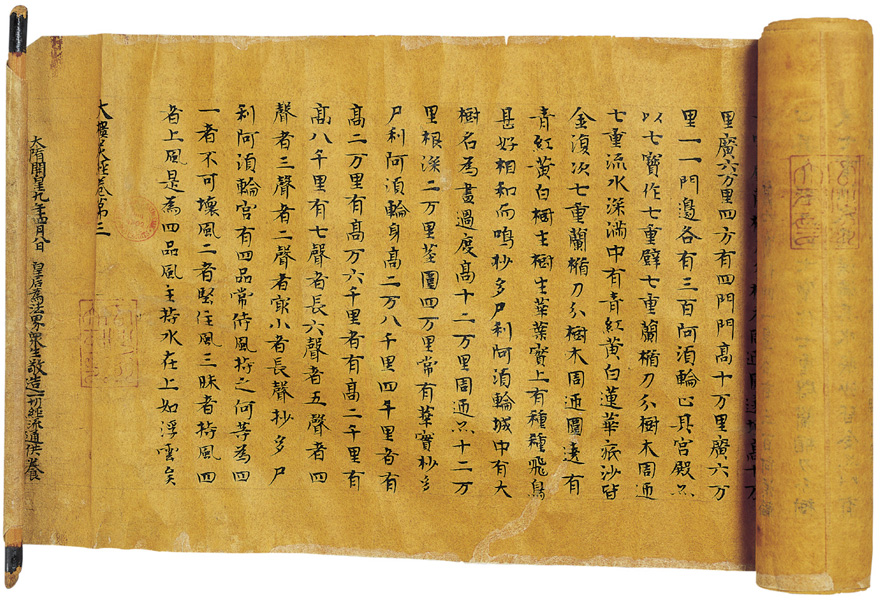 里廣六万里四方有四門門高十万里廣六万
里一一門邊各有三百阿須輪止其宮殿亦
以七寶作七重壁七重蘭楯刀分樹木周迊
七重流水深滿中有青紅黄白蓮華底沙皆
金復次七重蘭楯刀分樹木周迊圍遶有
青紅黄白樹生樹生華葉實上有種種飛鳥
甚好相和而鳴杪多尸利阿須輪城中有大
樹名為畫過度高十二万里周迊亦十二万
里根深二万里莖圍四万里常有華實杪多
尸利阿須輪身高二万八千里四千里者有
高二万里有高万六千里者有高二千里有
高八千里有七聲者長六聲者五聲者四
聲者三聲者二聲者寂小者長聲杪多尸
利阿須輪宮有四品常侍風持之何等為四
一者不可壞風二者堅住風三昧者持風四
者上風是為四品風主持水在上如浮雲矣
大樓炭經卷第三
大隋開皇九年四月八日 皇后為法界衆生敬造一切經流通供養